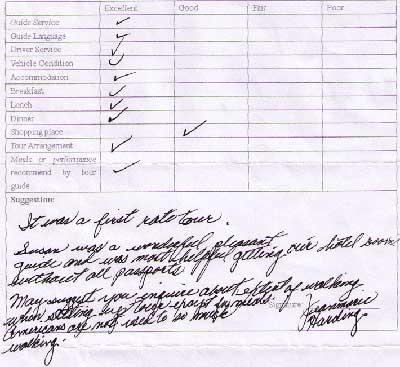 Excellent Good Fair Poor
Guide Service ✓
Guide Language ✓
Driver Service ✓
Vehicle Condition ✓
Accommodation ✓
Breakfast ✓
Lunch ✓
Dinner ✓
Shopping place ✓
Tour Arrangement ✓
Meals or performance
recommend by tour ✓
guide
Suggestion:
It was a first rate tour.
Susan was a wonderful, pleasant
guide and was most helpful getting our hotel room
without all passports
May suggest you inquire about extent of walking
when setting up tours
Americans are not used to so much
walking.
Signature: Jeanmarie
Harding